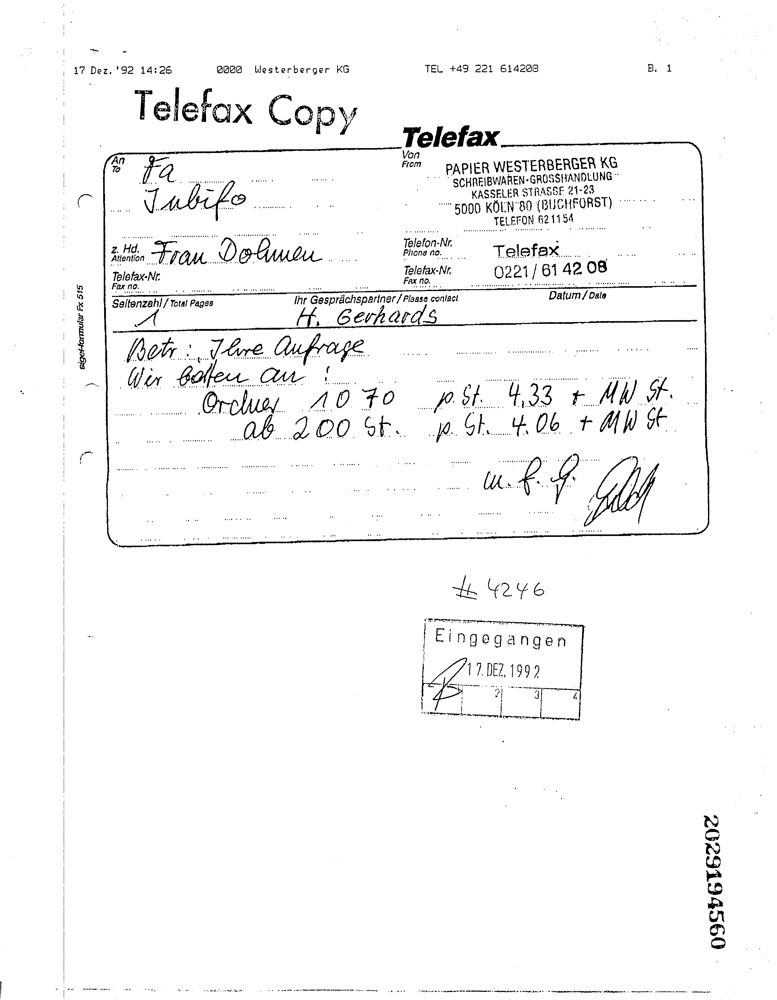 17 Dez. '92 14:26 0000 Westerberger KG TEL +49 221 614208 B. 1
Telefax Copy
Telefax
An
To
Fa
Jubifo
Von
From
PAPIER WESTERBERGER KG
SCHREIBWAREN-GROSSHANDLUNG
KASSELER STRASSE 21-23
5000 KÖLN 80 (BUCHFORST)
TELEFON 621154
z. Hd.
Attention
Frau Dohmen
Telefon-Nr.
Phone no.
Telefax
Telefax-Nr.
Fax no.
Telefax-Nr.
Fax no.
0221/61 42 08
Seitenzahl / Total Pages
1
Ihr Gesprächspartner / Please contact
H. Gerhards
Datum / Date
sigel-formular Fx 515
Betr: Ihre Anfrage
Wir bieten an :
Ordner 1070 p. St. 4,33 + MW St.
ab 200 St. p. St. 4.06 + MW St
m. f. g.
# 4246
Eingegangen
17. DEZ. 1992
2 3 4
2029194560